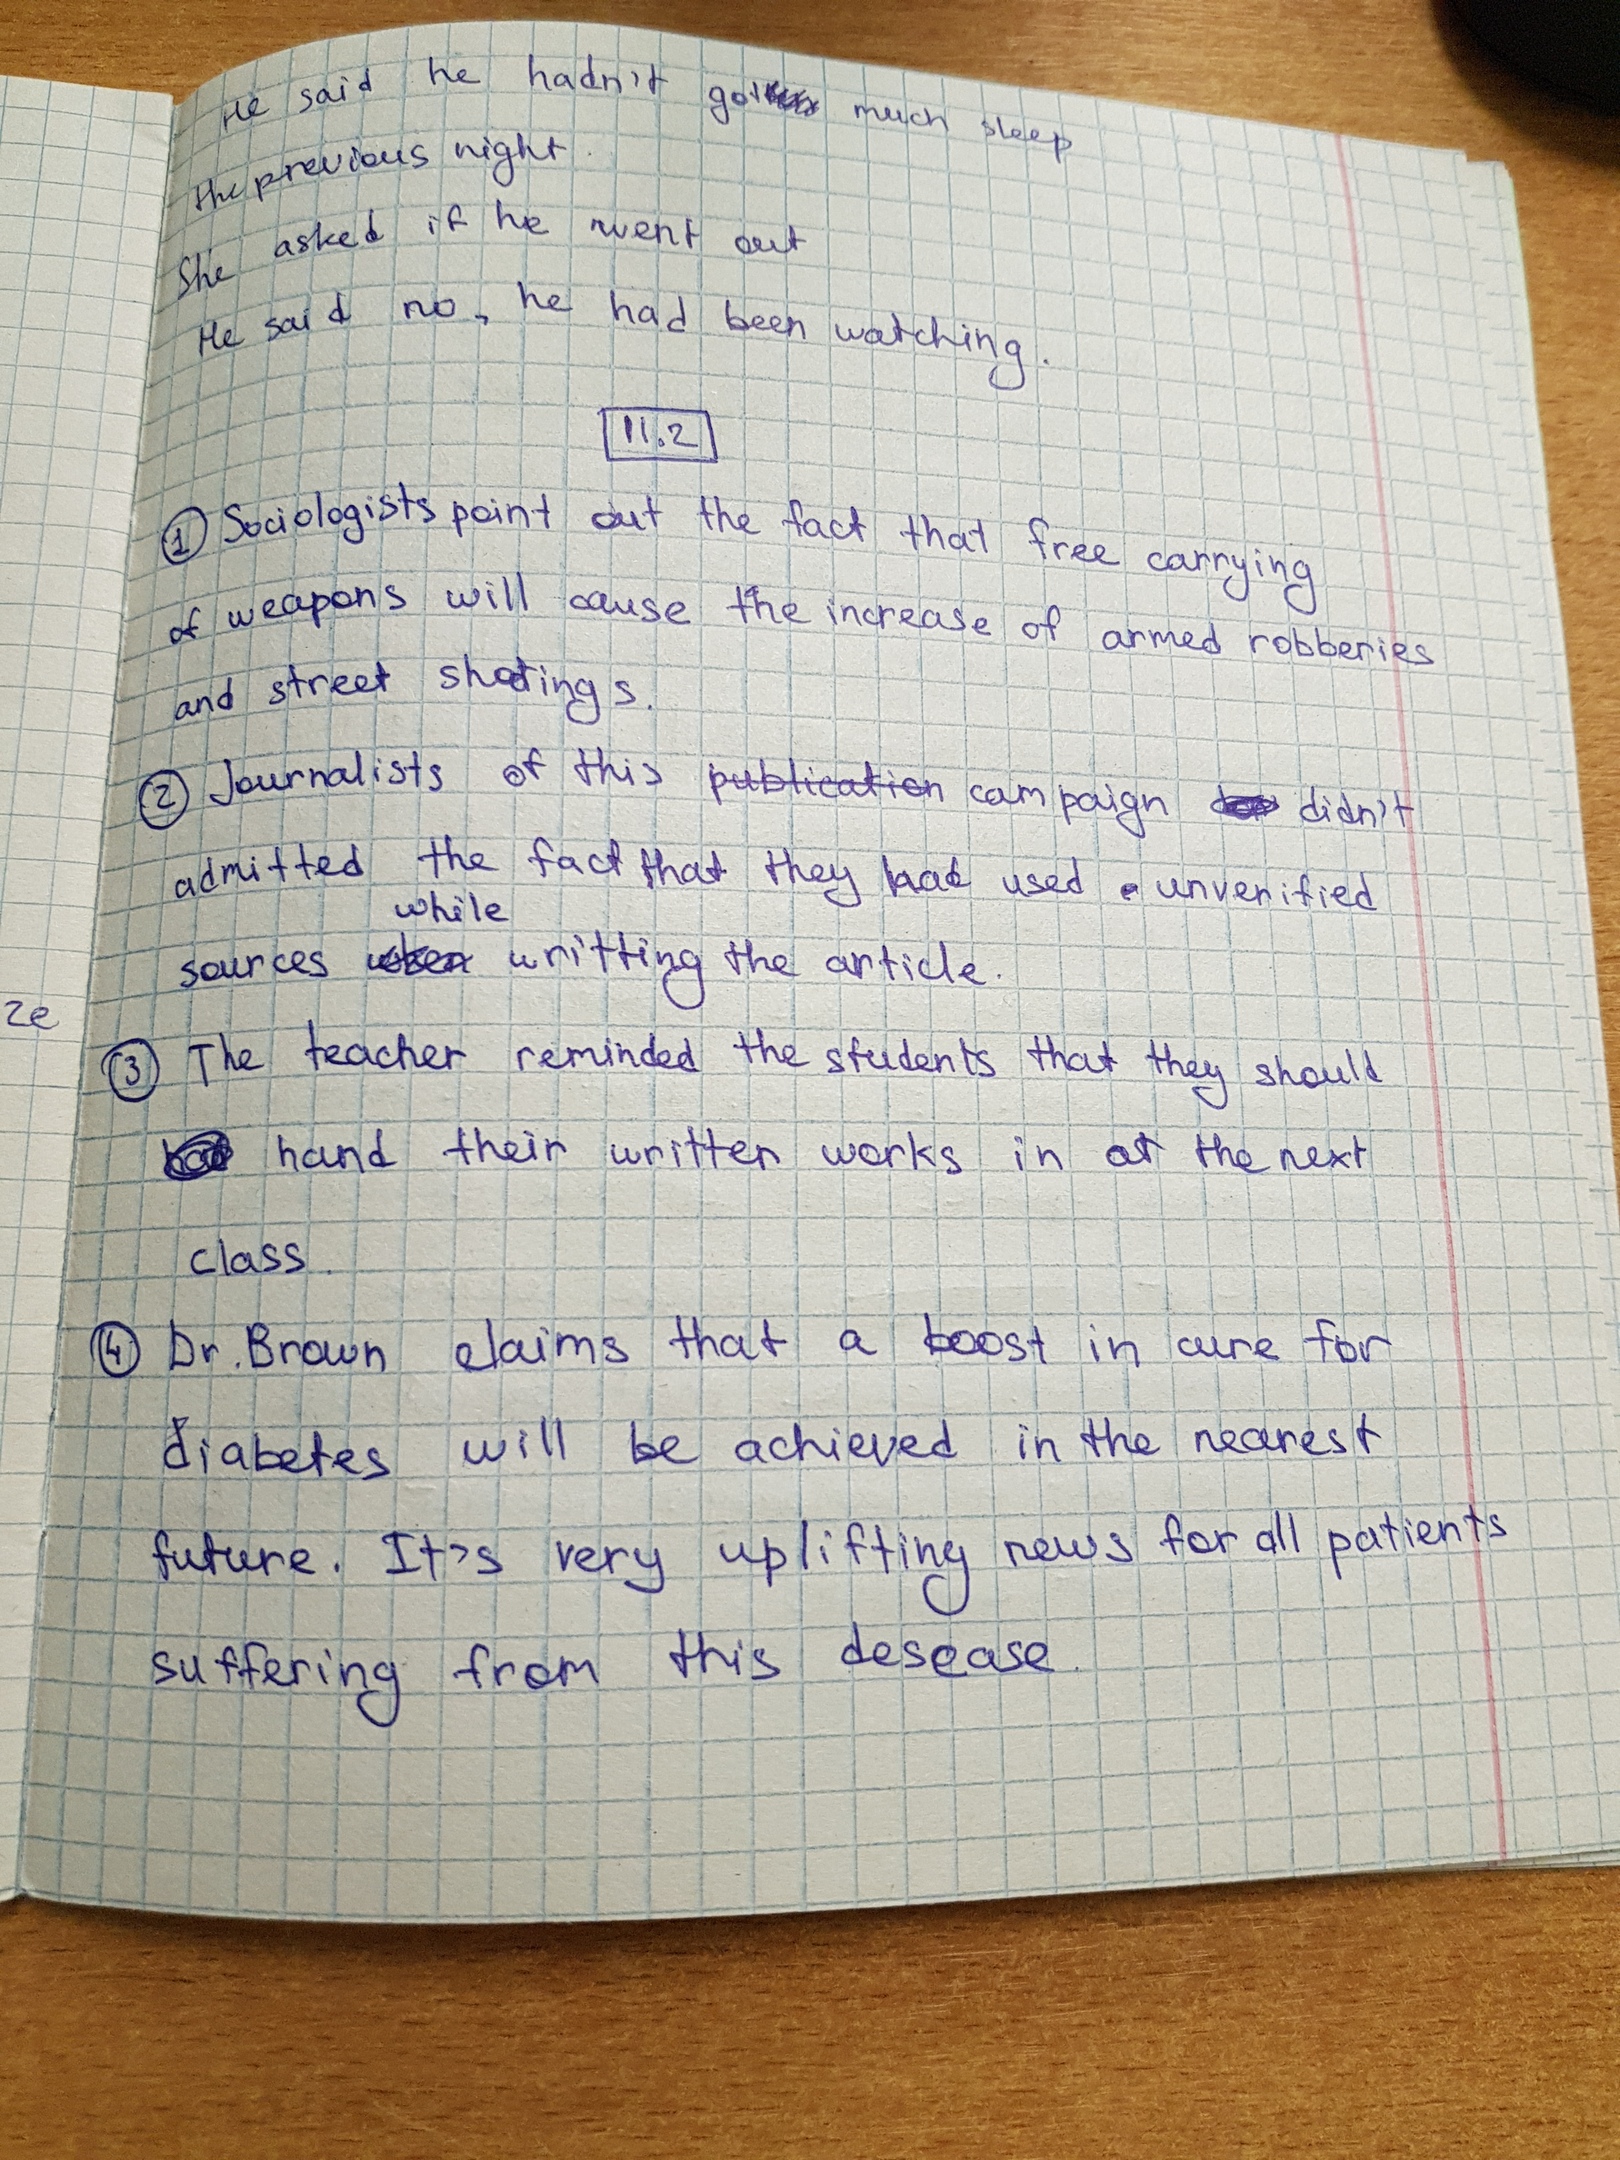 He said he hadn't got much sleep
the previous night.
She asked if he went out
He said no, he had been watching.
11.2
1 Sociologists point out the fact that free carrying
of weapons will cause the increase of armed robberies
and street shootings.
2 Journalists of this publication campaign didn't
admitted the fact that they had used unverified
while
sources when writting the article.
2e
3 The teacher reminded the students that they should
hand their written works in at the next
class.
4 Dr. Brown claims that a boost in cure for
diabetes will be achieved in the nearest
future. It's very uplifting news for all patients
suffering from this desease.